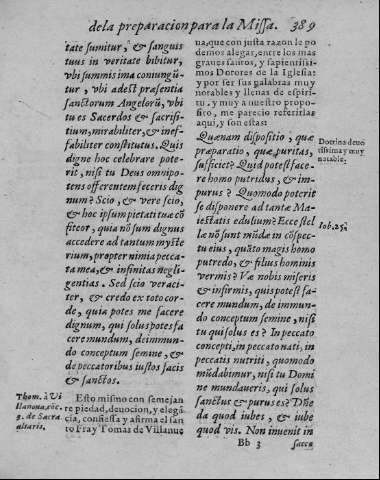 de la preparacion para la Missa. 389
tate sumitur, & sanguis
tuus in veritate bibitur,
vbi summis ima coniungũ-
tur, vbi adest præsentia
sanctorum Angelorũ, vbi
tu es Sacerdos & sacrifi-
tium, mirabiliter, & inef-
fabiliter constitutus. Quis
digne hoc celebrare pote-
rit, nisi tu Deus omnipo-
tens offerentem feceris dig
num? Scio, & vere scio,
& hoc ipsum pietati tuæ cõ
fiteor, quia nõ sum dignus
accedere ad tantum myste
rium, propter nimia pecca-
ta mea, & infinitas negli-
gentias. Sed scio veraci-
ter, & credo ex toto cor-
de, quia potes me facere
dignum, qui solus potes fa
cere mundum, de immun-
do conceptum semine, &
de peccatoribus iustos facis
& sanctos.
Esto mismo con semejan
te piedad, deuocion, y elegã
cia, confiessa y afirma el san
to Fray Tomas de Villanue
Thom. à Vi
llanoua, cõc.
3. de Sacra
altaris.
ua, que con justa razon le po
demos alegar, entre los mas
graues santos, y sapientissi-
mos Dotores de la Iglesia:
y por ser sus palabras muy
notables y llenas de espiri-
tu, y muy a nuestro propo-
sito, me parecio referirlas
aqui, y son estas:
Quænam dispositio, quæ
præparatio, quæ puritas,
sufficiet? Quid potest face-
re homo putridus, & im-
purus? Quomodo poterit
se disponere ad tantæ Ma-
iestatis edulium? Ecce stel
læ nõ sunt mũdæ in cõspec-
tu eius, quãto magis homo
putredo, & filius hominis
vermis? Væ nobis miseris
& infirmis, quis potest fa-
cere mundum, de immun-
do conceptum semine, nisi
tu qui solus es? In peccato
concepti, in peccato nati, in
peccatis nutriti, quomodo
mũdabimur, nisi tu Domi
ne mundaueris, qui solus
sanctus & purus es? Dñe
da quod iubes, & iube
quod vis. Non inuenit in
Dotrina deuo
tissima y muy
notable.
Iob. 25.
Bb 3 sacra